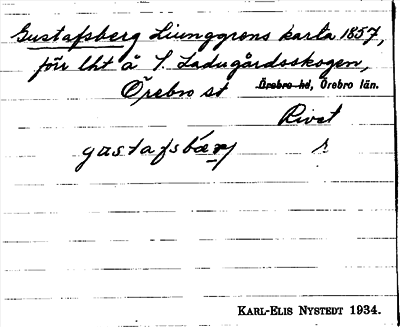 Gustafsberg Liunggrens karta 1857,
förr lht å S. Ladugårdsskogen,
Örebro st Örebro hd, Örebro län.
Rivet
gustafsbærj r
KARL-ELIS NYSTEDT 1934.